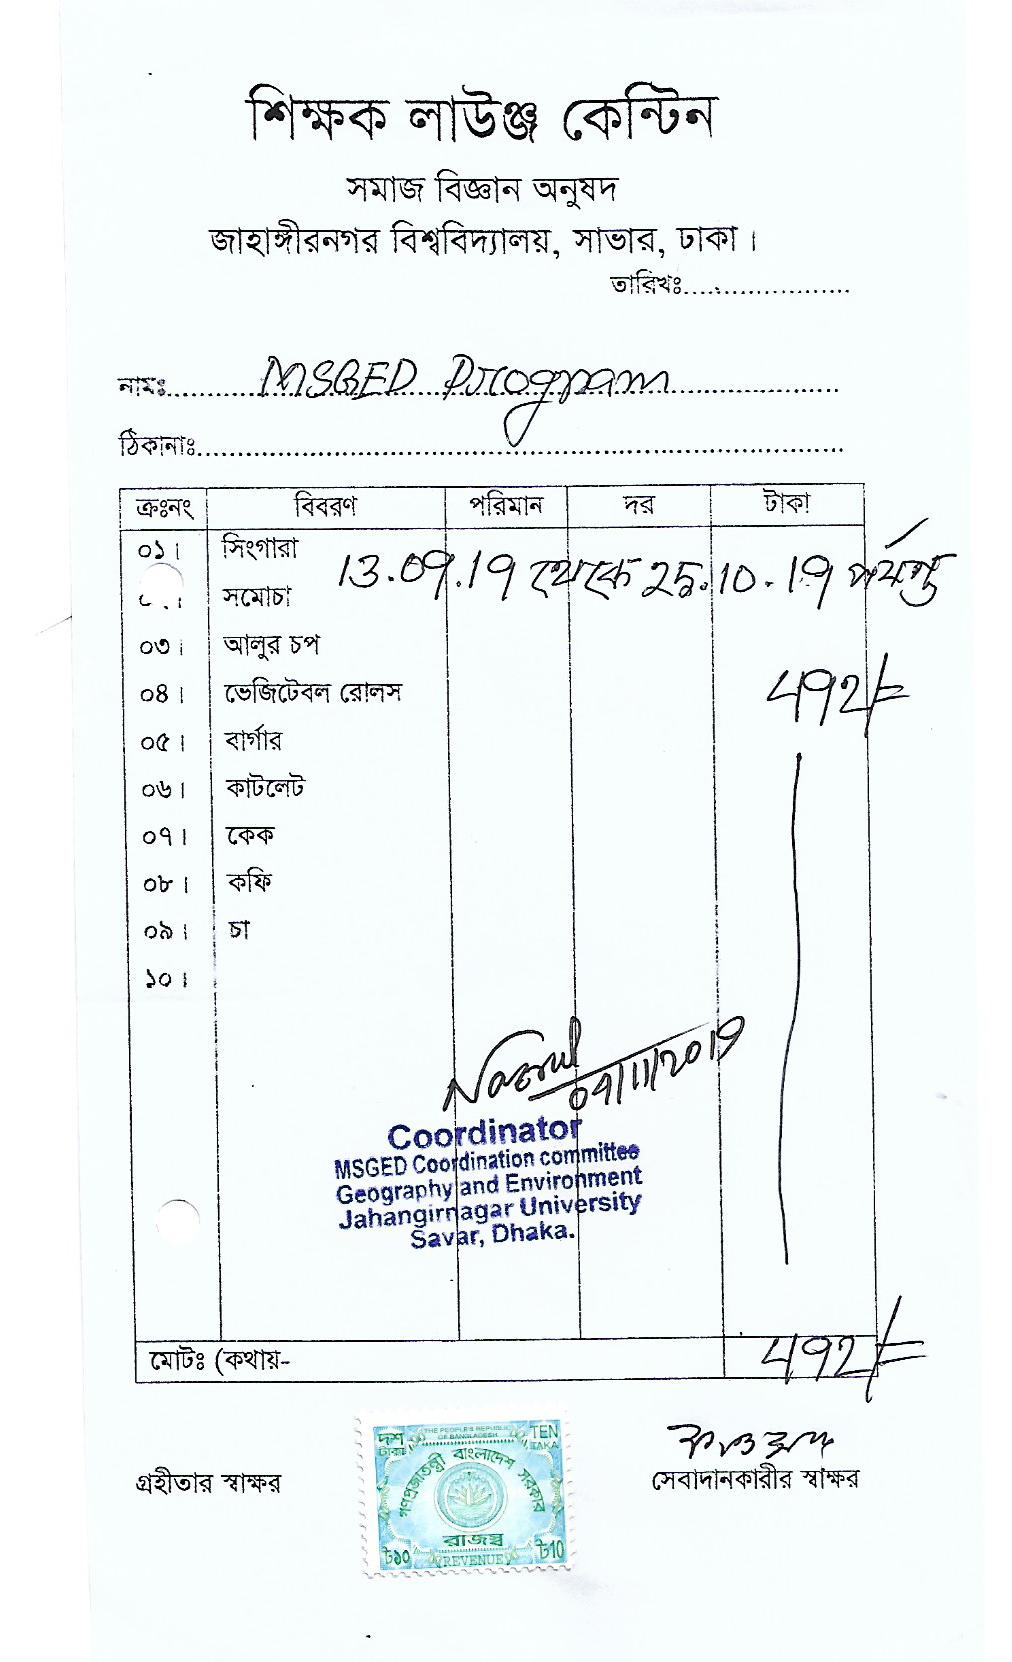 শিক্ষক লাউঞ্জ কেন্টিন
সমাজ বিজ্ঞান অনুষদ
জাহাঙ্গীরনগর বিশ্ববিদ্যালয়, সাভার, ঢাকা।
তারিখঃ........................
নামঃ MSGED Program
ঠিকানাঃ........................
ক্রঃনং বিবরণ পরিমান দর টাকা
০১। সিংগারা
13.09.19 থেকে 25.10.19 পর্যন্ত
সমোচা
০৩। আলুর চপ
০৪। ভেজিটেবল রোলস 492/=
০৫। বার্গার
০৬। কাটলেট
০৭। কেক
০৮। কফি
০৯। চা
১০।
09/11/2019
Coordinator
MSGED Coordination committee
Geography and Environment
Jahangirnagar University
Savar, Dhaka.
মোটঃ (কথায়- 492/=
দশ টাকা THE PEOPLE'S REPUBLIC OF BANGLADESH TEN TAKA
গণপ্রজাতন্ত্রী বাংলাদেশ সরকার
রাজস্ব
৳১০ REVENUE ৳10
গ্রহীতার স্বাক্ষর সেবাদানকারীর স্বাক্ষর